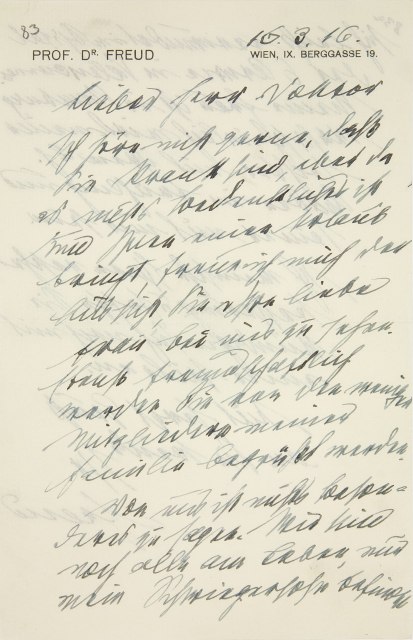 83
16. 3. 16.
PROF. DR. FREUD
WIEN, IX. BERGGASSE 19.
Lieber Herr Doktor
Ich höre nicht gerne, daß
Sie krank sind, aber da
es nichts bedenkliches ist
und Ihnen einen Urlaub
bringt, freue ich mich der
Sie liebe
Frau bei uns zu sehen.
freundschaftlich
werden Sie von den wenigen
Mitgliedern meiner
Familie begrüßt werden.
Von uns ist nichts beson-
deres zu sagen. Wir sind
noch alle am Leben, und
mein Schwiegersohn